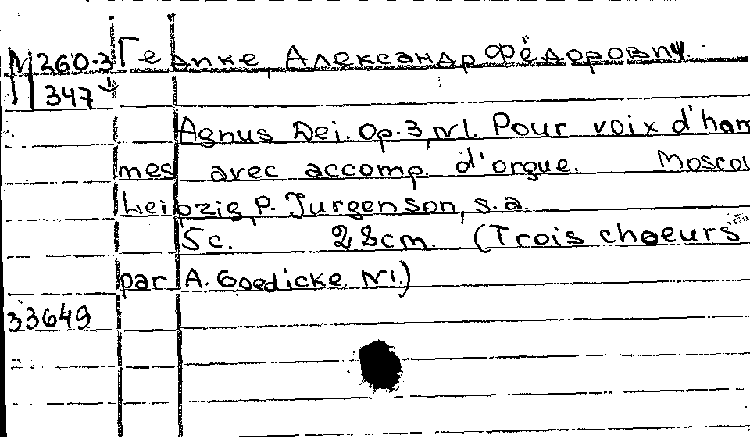 М 260.3 Гедике, Александр Фёдорович.
347
Agnus Dei. Op. 3, N1. Pour voix d'hom
mes avec accomp. d'orgue. Moscou
Leipzig, P. Jurgenson, s.a.
5c. 28cm. (Trois choeurs
par A. Goedicke N1.)
33649